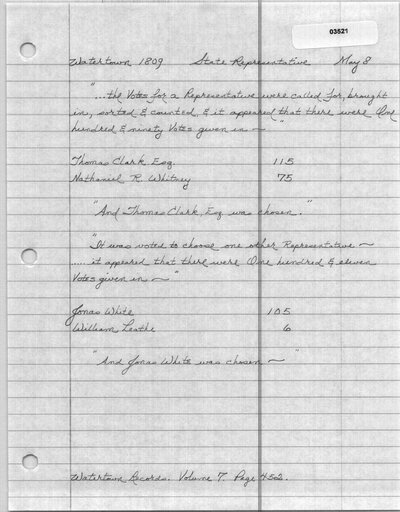 03521
Watertown 1809 State Representative May 8
"...the Votes for a Representative were called for, brought
in, sorted & counted, & it appeared that there were One
hundred & ninety Votes given in ~ "
Thomas Clark Esq 115
Nathaniel R. Whitney 75
"And Thomas Clark, Esq was chosen."
"It was voted to choose one other Representative ~
...... it appeared that there were One hundred & eleven
Votes given in ~ "
Jonas White 105
William Leathe 6
"And Jonas White was chosen ~ "
Watertown Records. Volume 7. Page 452.